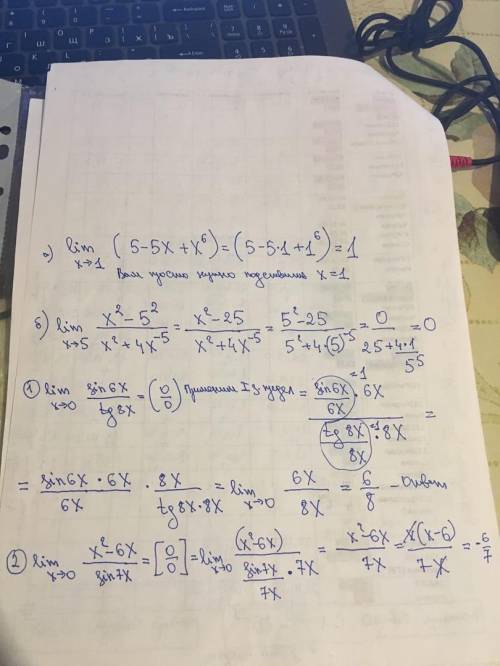 а) lim x→1 (5-5x+x⁶)=(5-5·1+1⁶)=1
Вам просто нужно подставить x=1
б) lim x→5 (x²-5²)/(x²+4x⁻⁵) = (x²-25)/(x²+4x⁻⁵) = (5²-25)/(5²+4·(5)⁻⁵) = 0/(25+(4·1)/5⁵) = 0
① lim x→0 sin6x/tg8x = (0/0) Применим I з. предел = ((sin6x/6x)=1 · 6x)/((tg8x/8x)=1 · 8x) =
= (sin6x · 6x)/6x · 8x/(tg8x·8x) = lim x→0 6x/8x = 6/8 - Ответ
② lim x→0 (x²-6x)/sin7x = [0/0] = lim x→0 (x²-6x)/((sin7x/7x)·7x) = (x²-6x)/7x = x(x-6)/7x = -6/7